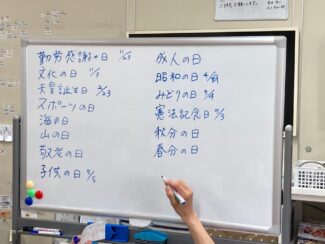 勤労感謝の日 11/23
文化の日 11/3
天皇誕生日 2/23
スポーツの日
海の日
山の日
敬老の日
子供の日 5/5
成人の日
昭和の日 4/29
みどりの日 5/4
憲法記念日 5/3
秋分の日
春分の日